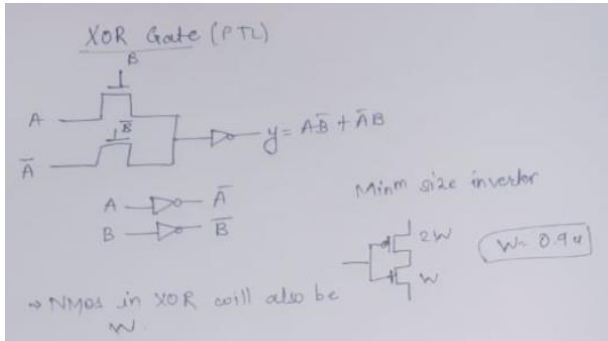 XOR Gate (PTL)
B
A
B̅
A̅
y = AB̅ + A̅B
A A̅
B B̅
Minm size invertor
2W
W
W = 0.9u
→ NMOS in XOR will also be
W.